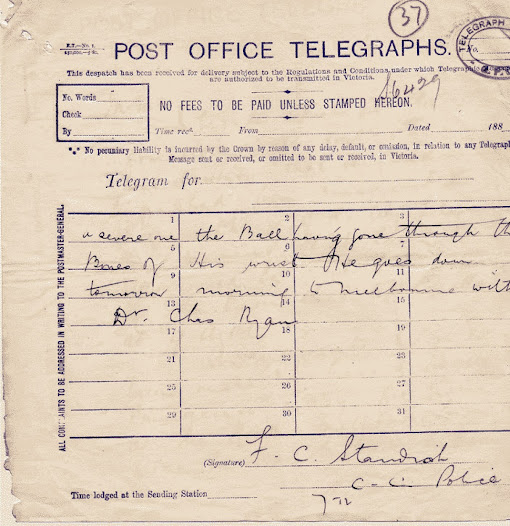 37
TELEGRAPH
No.
E.T.—No. 1.
POST OFFICE TELEGRAPHS.
This despatch has been received for delivery subject to the Regulations and Conditions under which Telegraphic
are authorized to be transmitted in Victoria.
No. Words
Check
By
NO FEES TO BE PAID UNLESS STAMPED HEREON.
Time recd. From Dated 188
No pecuniary liability is incurred by the Crown by reason of any delay, default, or omission, in relation to any Telegraph
Message sent or received, or omitted to be sent or received, in Victoria.
Telegram for
ALL COMPLAINTS TO BE ADDRESSED IN WRITING TO THE POSTMASTER-GENERAL.
1 2 3
a severe one the Ball having gone through th
5 6 7
Bones of His wrist He goes down
9 10 11
tomorrow morning to Melbourne with
13 14 15
Dr. Chas Ryan
17 18 19
21 22 23
25 26 27
29 30 31
(Signature) F. C. Standish
C-C. Police
Time lodged at the Sending Station